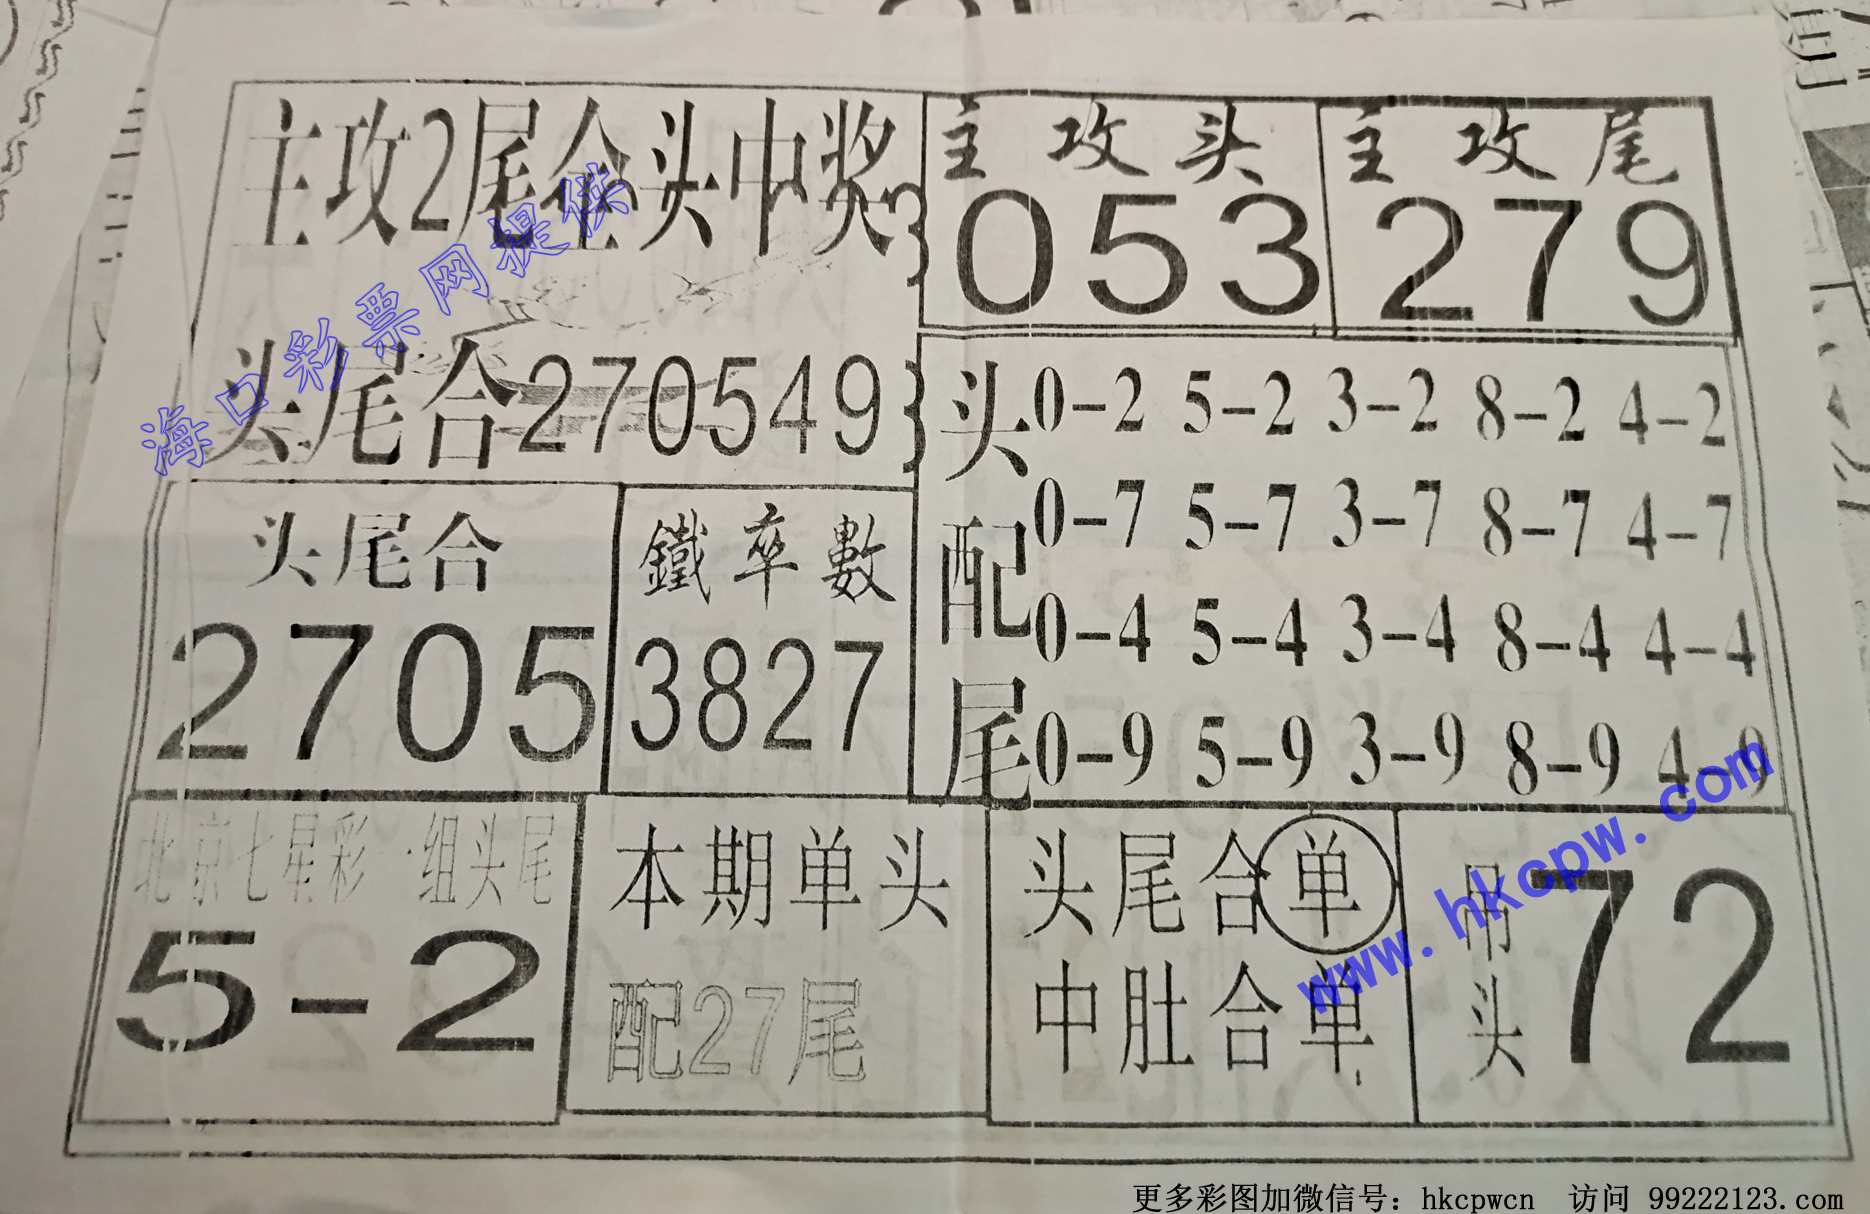 主攻2尾全头中奖
主攻头
053
主攻尾
279
头尾合270549
头配尾
0-2 5-2 3-2 8-2 4-2
0-7 5-7 3-7 8-7 4-7
0-4 5-4 3-4 8-4 4-4
0-9 5-9 3-9 8-9 4-9
头尾合
2705
鐵卒數
3827
北京七星彩一组头尾
5-2
本期单头
配27尾
头尾合单
中肚合单
吊头
72
海口彩票网提供
www.hkcpw.com
更多彩图加微信号：hkcpwcn 访问 99222123.com